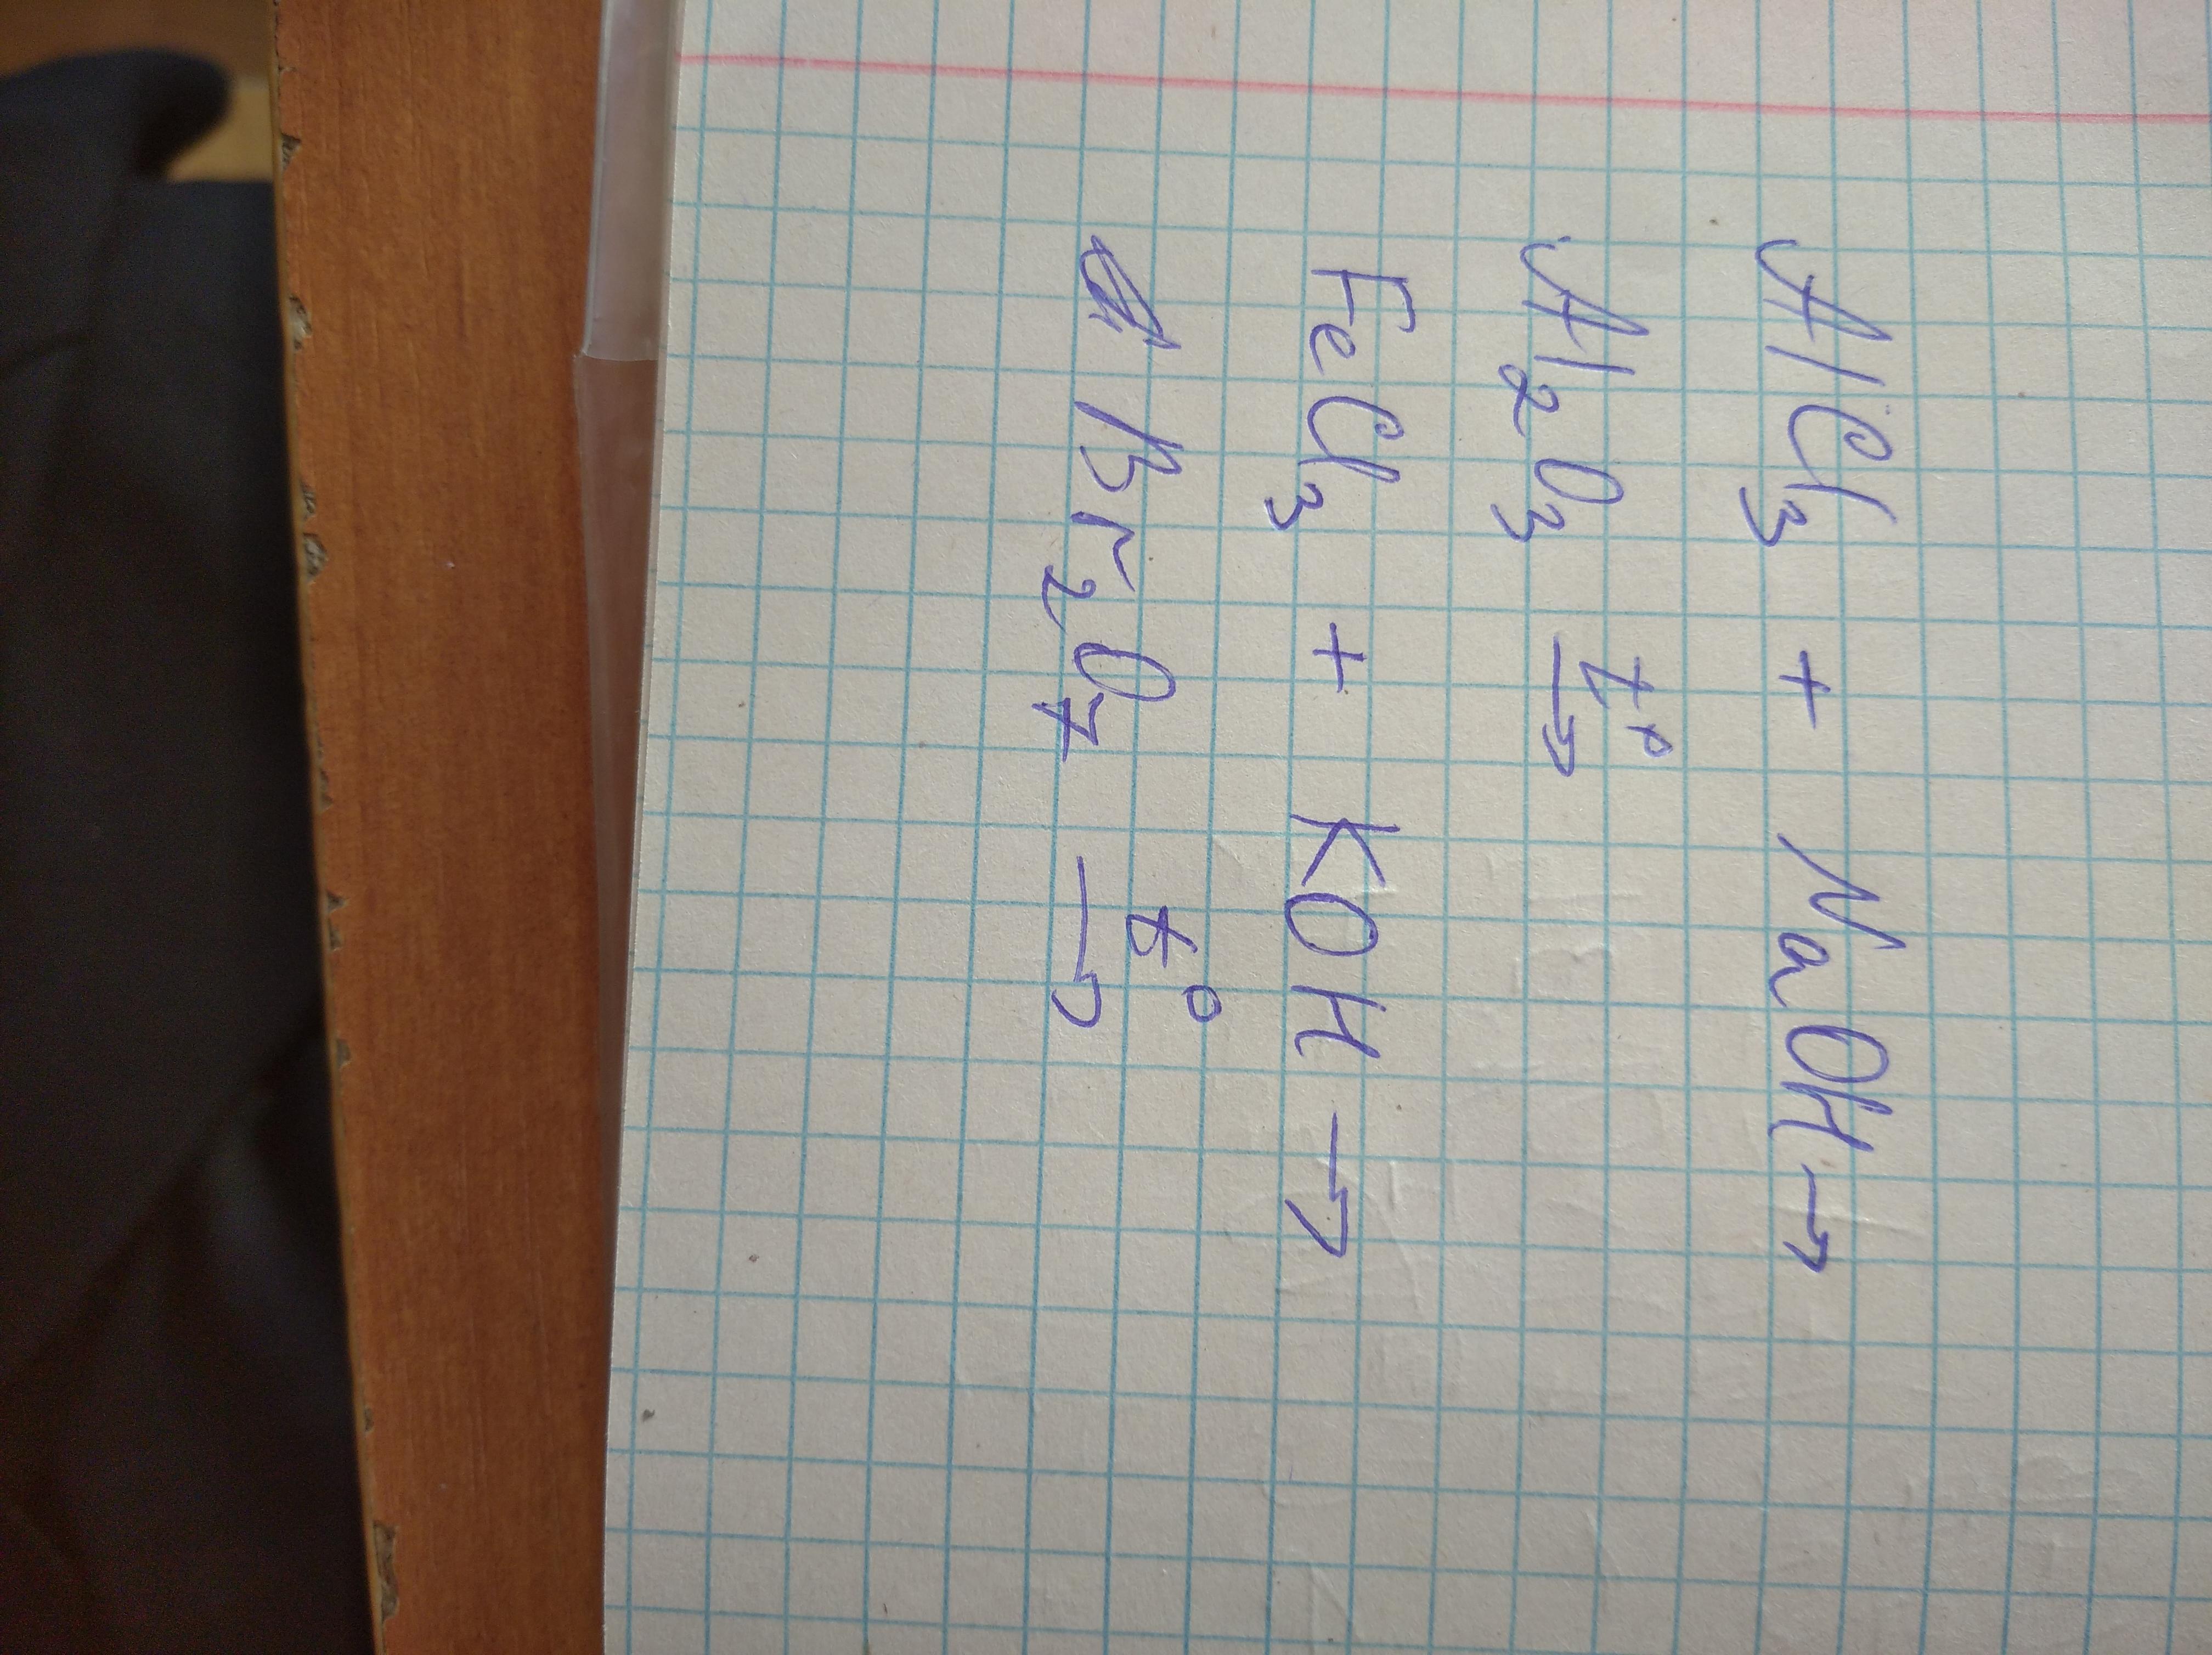 AlCl₃ + NaOH →
Al₂O₃ t° →
FeCl₃ + KOH →
Br₂O₇ t° →